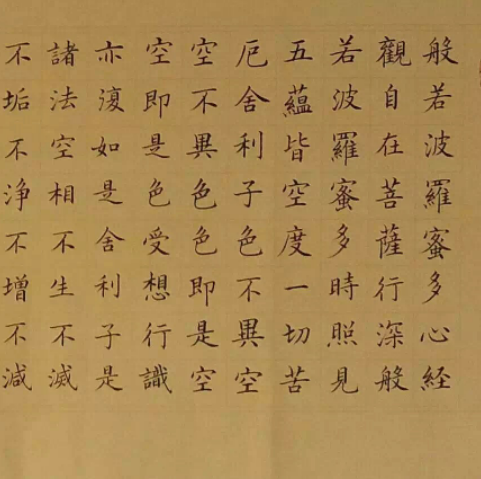 般若波羅蜜多心経
觀自在菩薩行深般
若波羅蜜多時照見
五蘊皆空度一切苦
厄舍利子色不異空
空不異色色即是空
空即是色受想行識
亦復如是舍利子是
諸法空相不生不滅
不垢不净不增不減